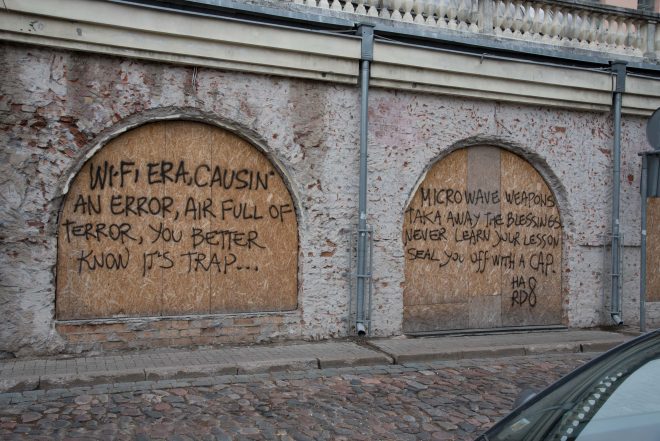 WI-FI ERA, CAUSIN'
AN ERROR, AIR FULL OF
TERROR, YOU BETTER
KNOW IT'S TRAP...
MICROWAVE WEAPONS
TAKA AWAY THE BLESSINGS
NEVER LEARN YOUR LESSON
SEAL YOU OFF WITH A CAP.
HA
RD8